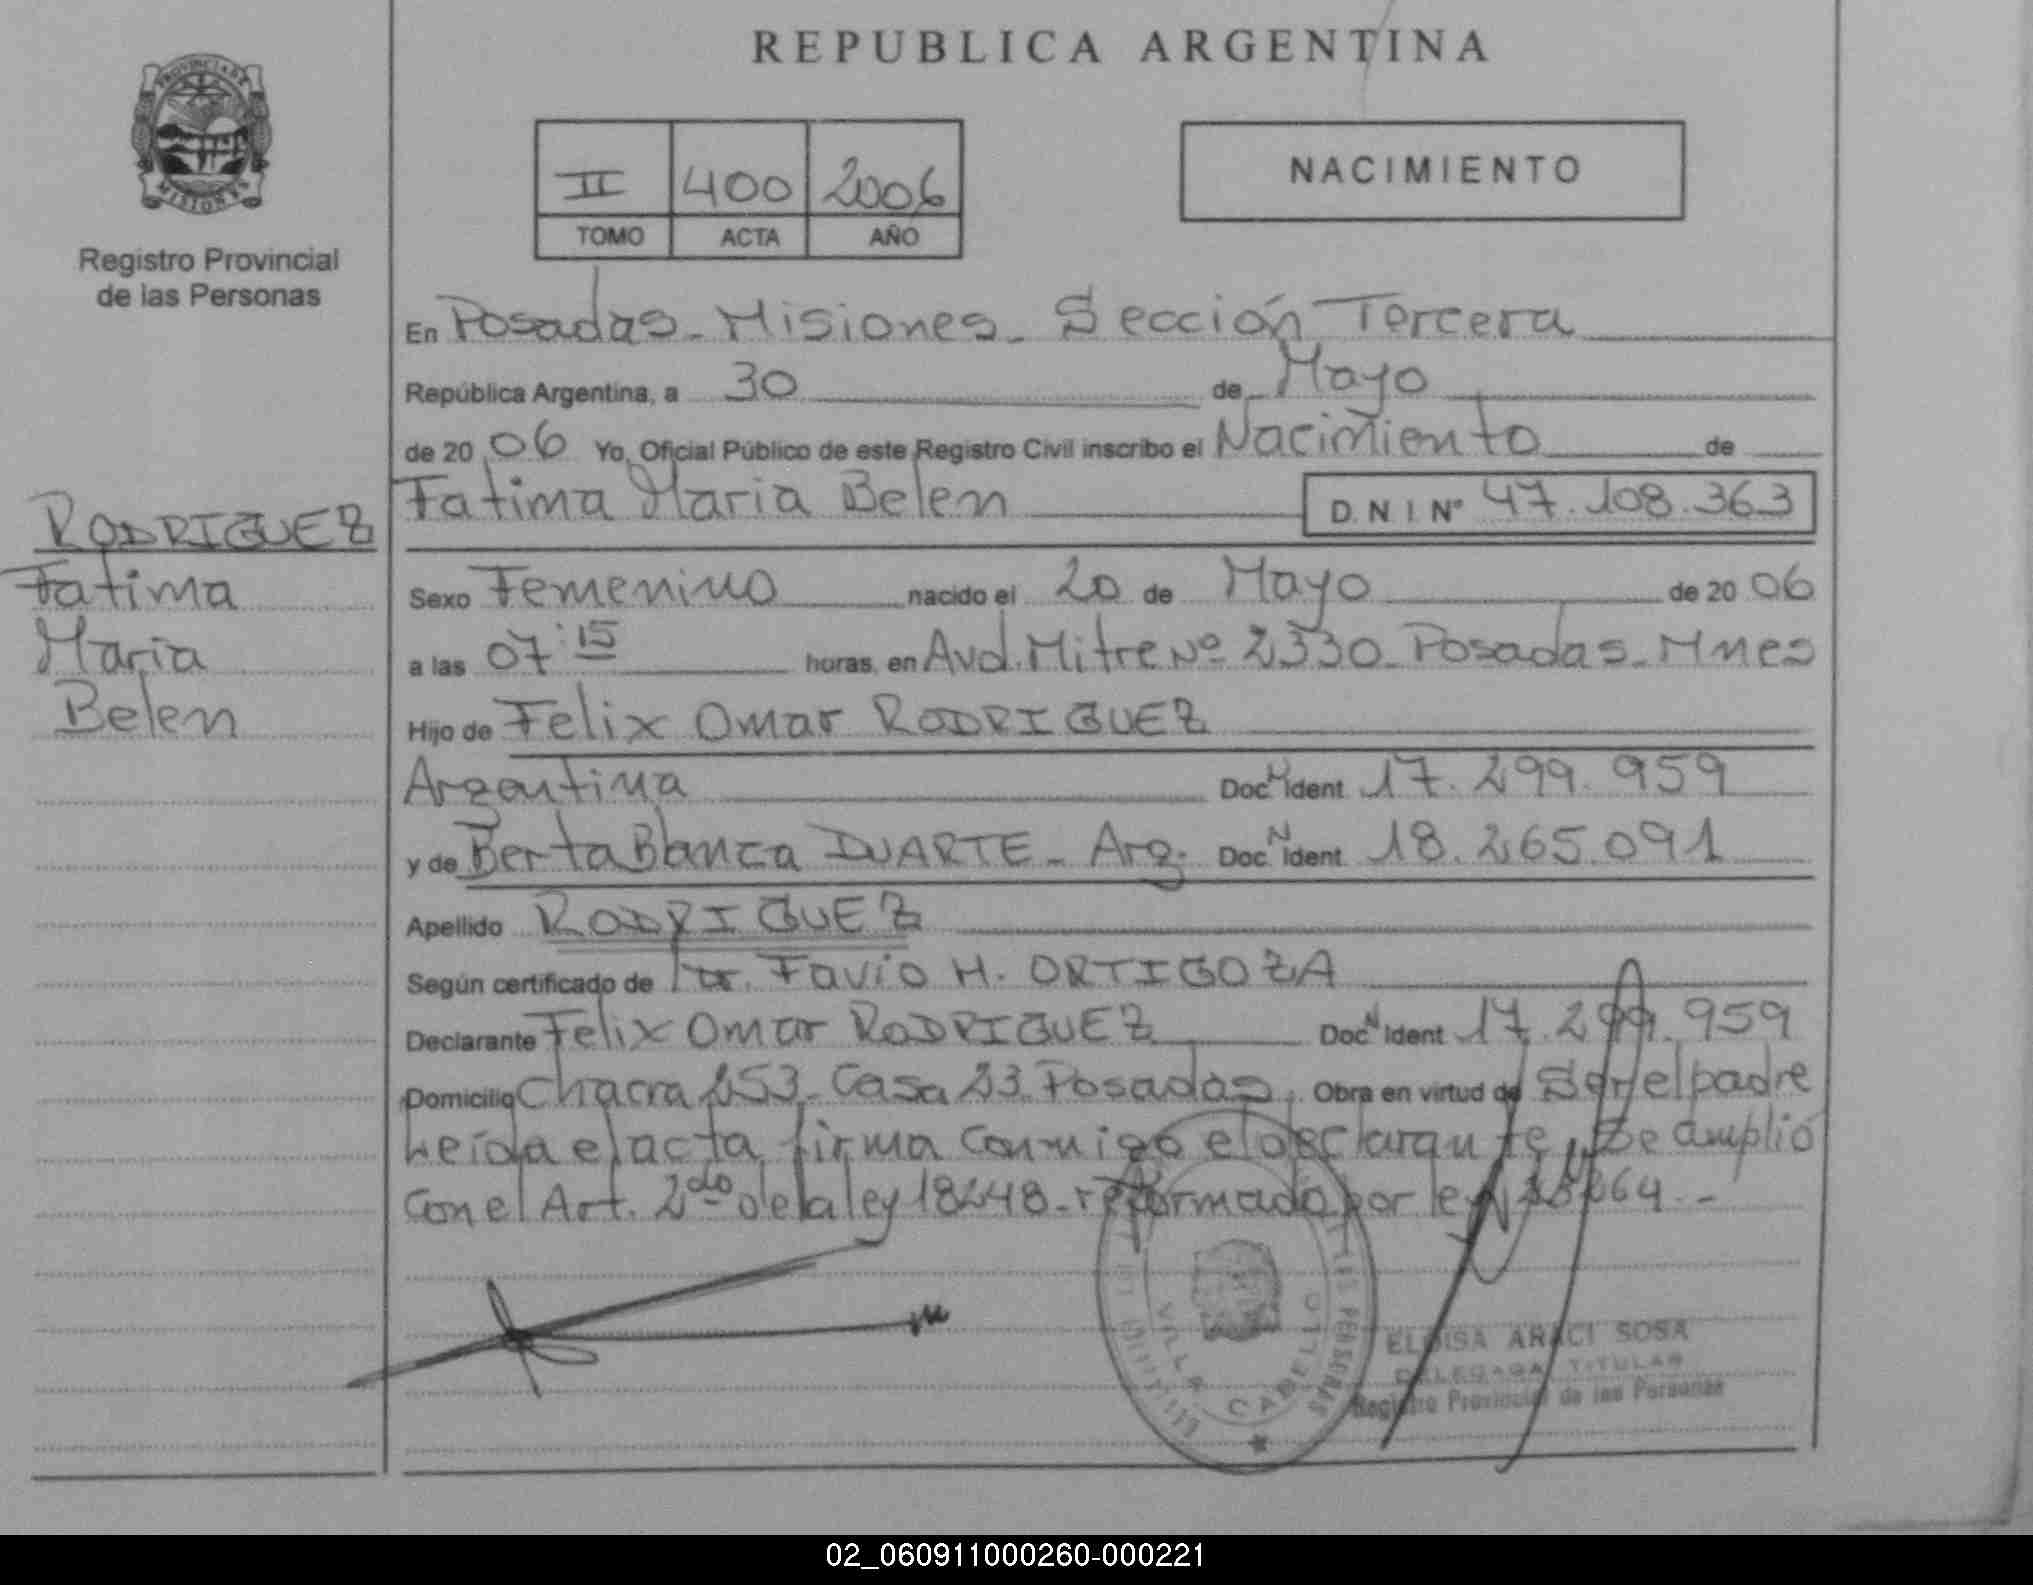 REPUBLICA ARGENTINA
PROVINCIA DE
MISIONES
Registro Provincial
de las Personas
II 400 2006
TOMO ACTA AÑO
NACIMIENTO
En Posadas - Misiones - Sección Tercera
República Argentina, a 30 de Mayo
de 20 06 Yo, Oficial Público de este Registro Civil inscribo el Nacimiento de
Fatima Maria Belen D.N.I. Nº 47.108.363
RODRIGUEZ
Fatima
Maria
Belen
Sexo Femenino nacido el 20 de Mayo de 20 06
a las 07:15 horas, en Avd. Mitre Nº 2330 - Posadas - Mnes
Hijo de Felix Omar RODRIGUEZ
Argentina Doc. N Ident. 17.299.959
y de Berta Blanca DUARTE - Arg. Doc. N Ident. 18.265.091
Apellido RODRIGUEZ
Según certificado de Dr. Favio H. ORTIGOZA
Declarante Felix Omar RODRIGUEZ Doc. N Ident. 17.299.959
Domicilio Chacra 253 - Casa 23 - Posadas. Obra en virtud de Ser el padre
Leída el acta firma conmigo el declarante, Se amplió
con el Art. 2do de la ley 18248 - reformado por ley
VILLA CABELLO
ELOISA ARACI SOSA
DELEGADA TITULAR
Registro Provincial de las Personas
02_060911000260-000221